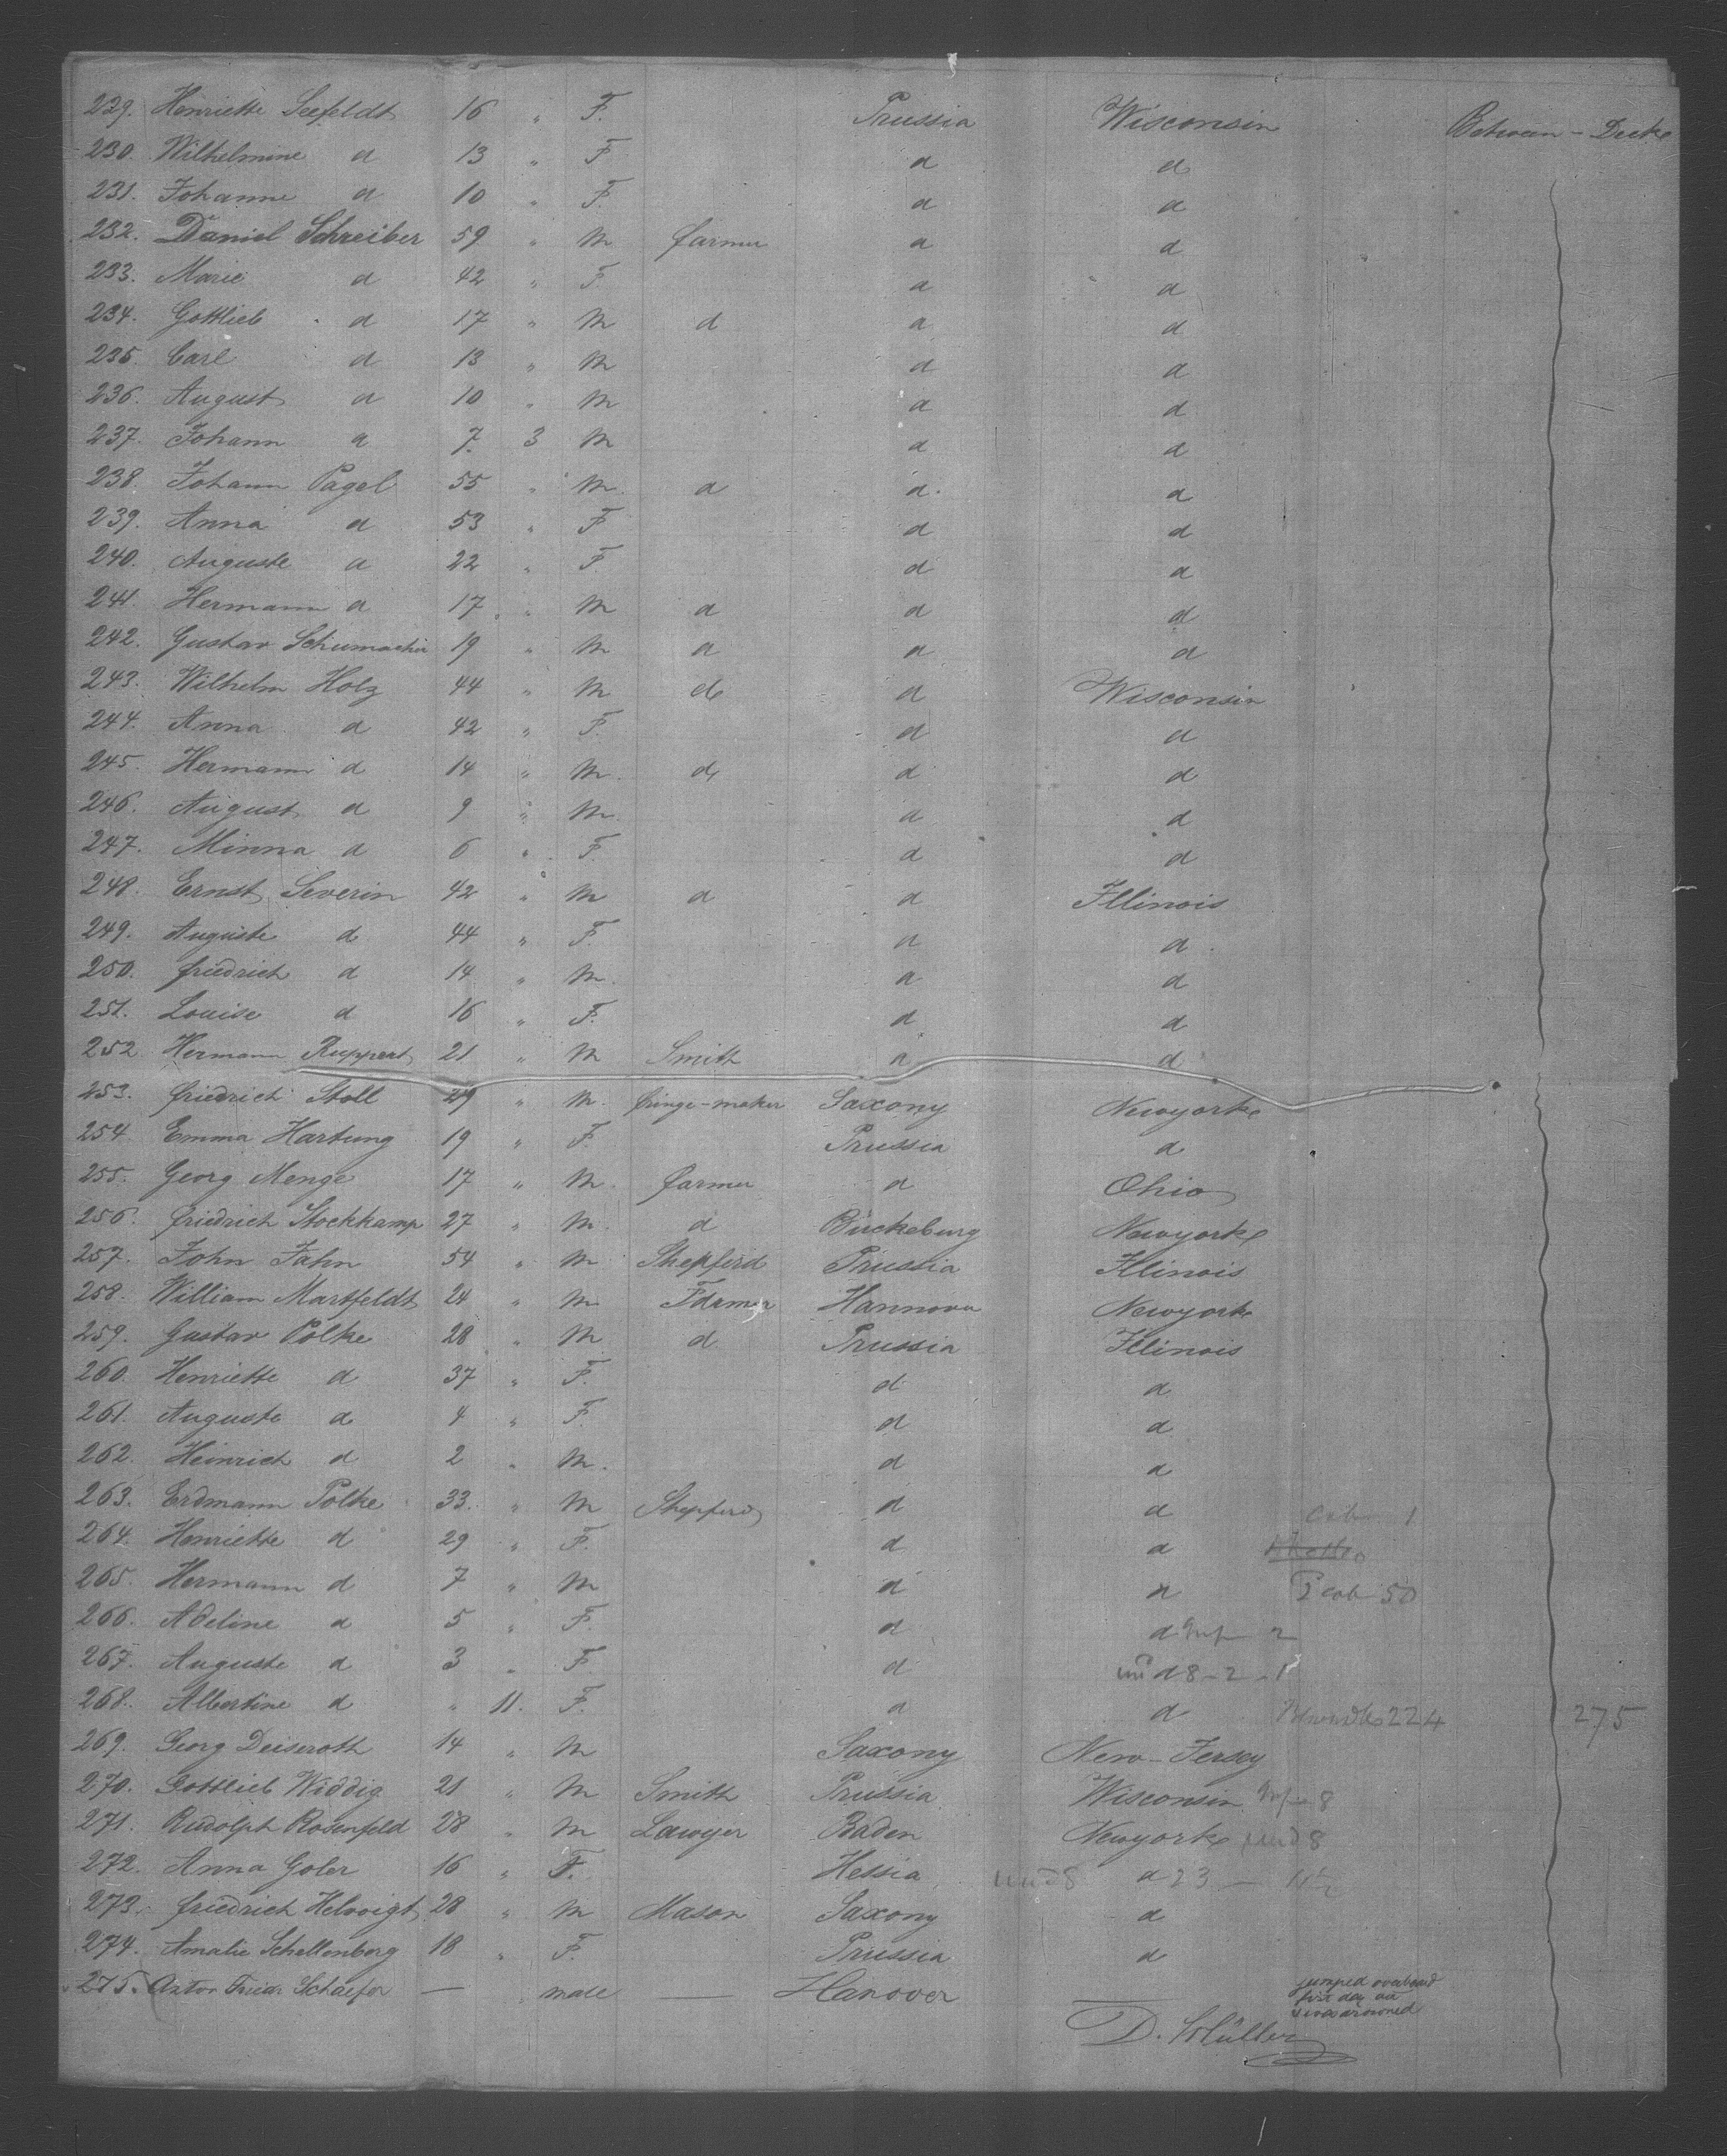 229. Henriette Seefeldt 16 " F. Prussia Wisconsin Between-Decke
230. Wilhelmine d 13 " F d d
231. Johanne d 10 " F. d d
232. Daniel Schreiber 59 " M farmer d d
233. Marie d 42 " F d d
234. Gottlieb d 17 " M d d d
235. Carl d 13 " M d d
236. August d 10 " M d d
237. Johann d 7. 3 M d d
238. Johann Pagel 55 " M. d d. d
239. Anna d 53 " F d d
240. Auguste d 22 " F. d d
241. Hermann d 17 " M d d d
242. Gustav Schumacher 19 " M d d d
243. Wilhelm Holz 44 " M d d Wisconsin
244. Anna d 42 " F. d d
245. Hermann d 14 " M. d d d
246. August d 9 " M. d d
247. Minna d 6 " F. d d
248. Ernst Severin 42 " M d d Illinois
249. Auguste d 44 " F. d d
250. friedrich d 14 " M. d d
251. Louise d 16 " F. d d
252 Hermann Ruppert 21 " M Smith d d
253. friedrich Stoll 29 " M. fringe-maker Saxony Newyorke
254 Emma Hartung 19 " F. Prussia d
255. Georg Menge 17 " M. farmer d Ohio
256. friedrich Stockkamp 27 " M. d Bückeburg Newyorke
257. John Jahn 54 " M Shepferd Prussia Illinois
258. William Martfeldt 24 " M Farmer Hannover Newyorke
259. Gustav Polke 28 " M d Prussia Illinois
260. Henriette d 37 " F. d d
261. Auguste d 4 " F. d d
262. Heinrich d 2 " M. d d
263. Erdmann Polke 33. " M Shepferd d d Cab 1
264. Henriette d 29 " F. d d
265. Hermann d 7 " M d d 2 Cab 50
266. Adeline d 5 " F. d d 2
267. Auguste d 3 " F d d und 8-2-1
268. Albertine d " 11. F. d d 224 275
269. Georg Deiseroth 14 " M Saxony New-Jersey
270. Gottlieb Widdig 21 " M Smith Prussia Wisconsin 8
271. Rudolph Rosenfeld 28 " M Lawyer Baden Newyorke und 8
272. Anna Goler 16 " F. Hessia und 8 d 23 —
273. friedrich Helwigt 28 " M Mason Saxony d
274. Amalie Schellenberg 18 " F. Prussia d
275. Anton Friedr Schaefer — " male — Hanover — jumped overboard
first day out
& was drowned
D. Müller